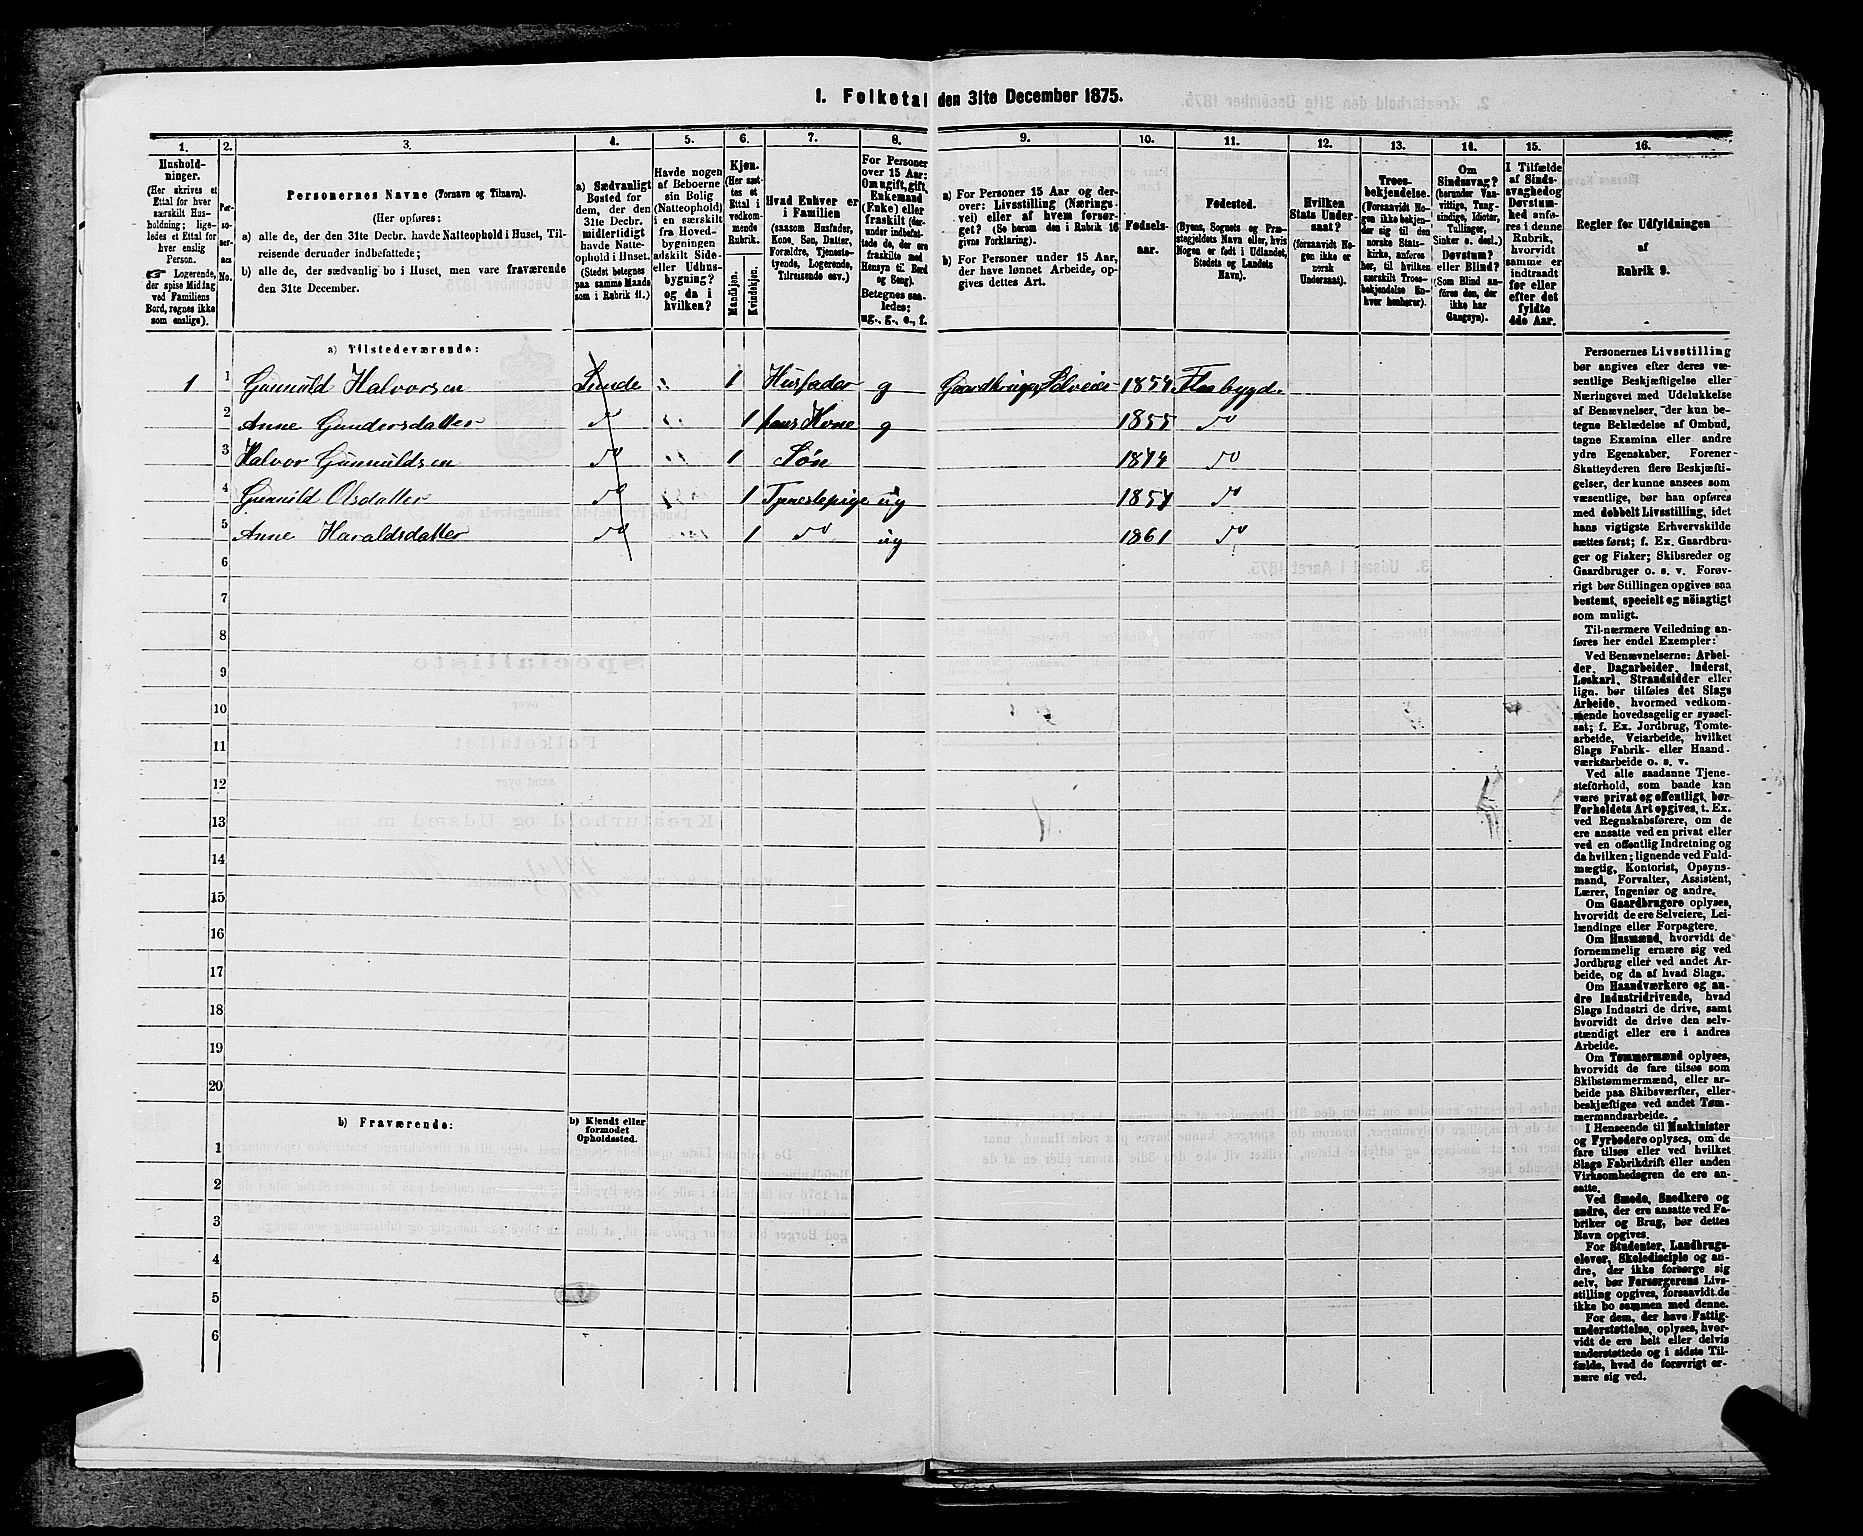 1. Folketal den 31te December 1875.
1. 2. 3. 4. 5. 6. 7. 8. 9. 10. 11. 12. 13. 14. 15. 16.
Hushold-
ninger.
(Her skrives et
Ettal for hver
særskilt Hus-
holdning; lige-
ledes et Ettal for
hver enslig
Person.
☞ Logerende,
der spise Middag
ved Familiens
Bord, regnes ikke
som enslige).
Per-
soner-
nes
No.
Personernes Navne (Fornavn og Tilnavn).
(Her opføres:
a) alle de, der den 31te Decbr. havde Natteophold i Huset, Til-
reisende derunder indbefattede;
b) alle de, der sædvanlig bo i Huset, men vare fraværende
den 31te December.
a) Sædvanligt
Bosted for
dem, der den
31te Decbr.
midlertidigt
havde Natte-
ophold i Huset.
(Stedet betegnes
paa samme Maade
som i Rubrik 11.)
Havde nogen
af Beboerne
sin Bolig
(Natteophold)
i en særskilt
fra Hoved-
bygningen
adskilt Side-
eller Udhus-
bygning?
og da i
hvilken?
Kjøn.
(Her sæt-
tes et
Ettal i
vedkom-
mende
Rubrik.
Mandkjøn.
Kvindekjøn.
Hvad Enhver er
i Familien
(saasom Husfader,
Kone, Søn, Datter,
Forældre, Tjeneste-
tyende, Logerende,
Tilreisende osv.)
For Personer
over 15 Aar:
Om ugift, gift,
Enkemand
(Enke) eller
fraskilt (der-
under indbefat-
tede de, der ere
fraskilte med
Hensyn til Bord
og Seng).
Betegnes saa-
ledes:
ug., g., e., f.
a) For Personer 15 Aar og der-
over: Livsstilling (Nærings-
vei) eller af hvem forsør-
get? (Se herom den i Rubrik 16
givne Forklaring).
b) For Personer under 15 Aar,
der have lønnet Arbeide, op-
gives dettes Art.
Fødsels-
aar.
Fødested.
(Byens, Sognets og Præ-
stegjeldets Navn eller, hvis
Nogen er født i Udlandet,
Stedets og Landets
Navn).
Hvilken
Stats Under-
saat?
(forsaavidt No-
gen ikke er
norsk
Undersaat).
Troes-
bekjendelse.
(Forsaavidt No-
gen ikke bekjen-
der sig til den
norske Stats-
kirke, anføres
her, til hvilken
særskilt Troes-
bekjendelse En-
hver henhører).
Om
Sindssvag?
(herunder Van-
vittige, Tung-
sindige, Idioter,
Tullinger,
Sinker o. desl.)
Døvstum?
eller Blind?
(Som Blind an-
føres den, der
ikke har
Gangsyn).
I Tilfælde
af Sinds-
svaghed og
Døvstum-
hed anfø-
res i denne
Rubrik,
hvorvidt
samme er
indtraadt
før eller
efter det
fyldte
4de Aar.
Regler for Udfyldningen
af
Rubrik 9.
a) Tilstedeværende:
1 1 Gunnuld Halvorsen Lunde 1 Husfader g Gaardbruger Selveier 1854 Flaabygd
2 Anne Gundersdatter do 1 hans Kone g 1855 do
3 Halvor Gunnuldsen do 1 Søn 1874 do
4 Gunnild Olsdatter do 1 Tjenestepige ug 1857 do
5 Anne Haraldsdatter do 1 do ug 1861 do
6
7
8
9
10
11
12
13
14
15
16
17
18
19
20
b) Fraværende:
b) Kjendt eller
formodet
Opholdssted.
1
2
3
4
5
6
Personernes Livsstilling
bør angives efter deres væ-
sentlige Beskjæftigelse eller
Næringsvei med Udelukkelse
af Benævnelser, der kun be-
tegne Beklædelse af Ombud,
tagne Examina eller andre
ydre Egenskaber. Forener
Skatteyderen flere Beskjæfti-
gelser, der kunne ansees som
væsentlige, bør han opføres
med dobbelt Livsstilling, idet
hans vigtigste Erhvervskilde
sættes først; f. Ex. Gaardbru-
ger og Fisker; Skibsreder og
Gaardbruger o. s. v. Forøv-
rigt bør Stillingen opgives saa
bestemt, specielt og nöiagtigt
som muligt.
Til nærmere Veiledning an-
føres her endel Exempler:
Ved Benævnelserne: Arbei-
der, Dagarbeider, Inderst,
Løskarl, Strandsidder eller
lign. bør tilføies det Slags
Arbeide, hvormed vedkom-
mende hovedsagelig er syssel-
sat; f. Ex. Jordbrug, Tomte-
arbeide, Veiarbeide, hvilket
Slags Fabrik- eller Haand-
værksarbeide o. s. v.
Ved alle saadanne Tjene-
steforhold, som baade kan
være privat og offentligt, bør
Forholdets Art opgives, t. Ex.
ved Regnskabsførere, om de
ere ansatte ved en privat eller
ved en offentlig Indretning og
da hvilken; lignende ved Fuld-
mægtig, Kontorist, Opsyns-
mand, Forvalter, Assistent,
Lærer, Ingeniør og andre.
Om Gaardbrugere oplyses,
hvorvidt de ere Selveiere, Lei-
lændinge eller Forpagtere.
Om Husmænd, hvorvidt de
fornemmelig ernære sig ved
Jordbrug eller ved andet Ar-
beide, og da af hvad Slags.
Om Haandværkere og an-
dre Industridrivende, hvad
Slags Industri de drive, samt
hvorvidt de drive den selv-
stændigt eller ere i andres
Arbeide.
Om Tømmermænd oplyses,
hvorvidt de fare tilsøs som
Skibstømmermænd, eller ar-
beide paa Skibsværfter, eller
beskjæftiges ved andet Tøm-
mermandsarbeide.
I Henseende til Maskinister
og Fyrbødere oplyses, om de
fare tilsøs eller ved hvilket
Slags Fabrikdrift eller anden
Virksomhedsgren de ere an-
satte.
Ved Smede, Snedkere og
andre, der ere ansatte ved Fa-
briker og Brug, bør dettes
Navn opgives.
For Studenter, Landbrugs-
elever, Skoledisciple og an-
dre, der ikke forsørge sig
selv, bør Forsørgerens Livs-
stilling opgives, forsaavidt de
ikke bo sammen med denne.
For dem, der have Fattig-
understøttelse, oplyses, hvor-
vidt de ere helt eller delvis
understøttede og i sidste Til-
fælde, hvad de forøvrigt er-
nære sig ved.